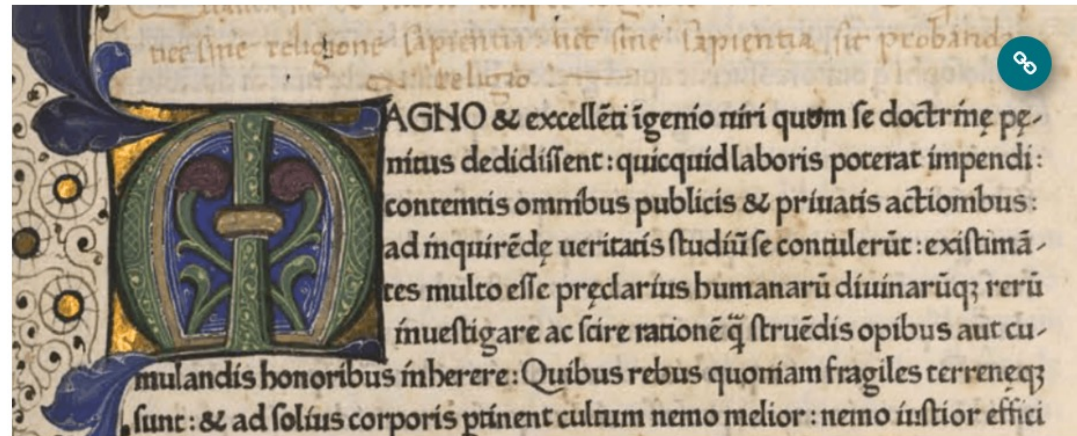 nec sine religione sapientia nec sine sapientia sit probanda
religio
MAGNO & excellēti īgenio uiri quom se doctrinę pę-
nitus dedidissent: quicquid laboris poterat impendi:
contemtis omnibus publicis & priuatis actionibus:
ad inquirēdę ueritatis studiū se contulerūt: existimā-
tes multo esse pręclarius humanarū diuinarūq; rerū
inuestigare ac scire rationē q̄ struēdis opibus aut cu-
mulandis honoribus inherere: Quibus rebus quoniam fragiles terreneq;
sunt: & ad solius corporis ptinent cultum nemo melior: nemo iustior effici